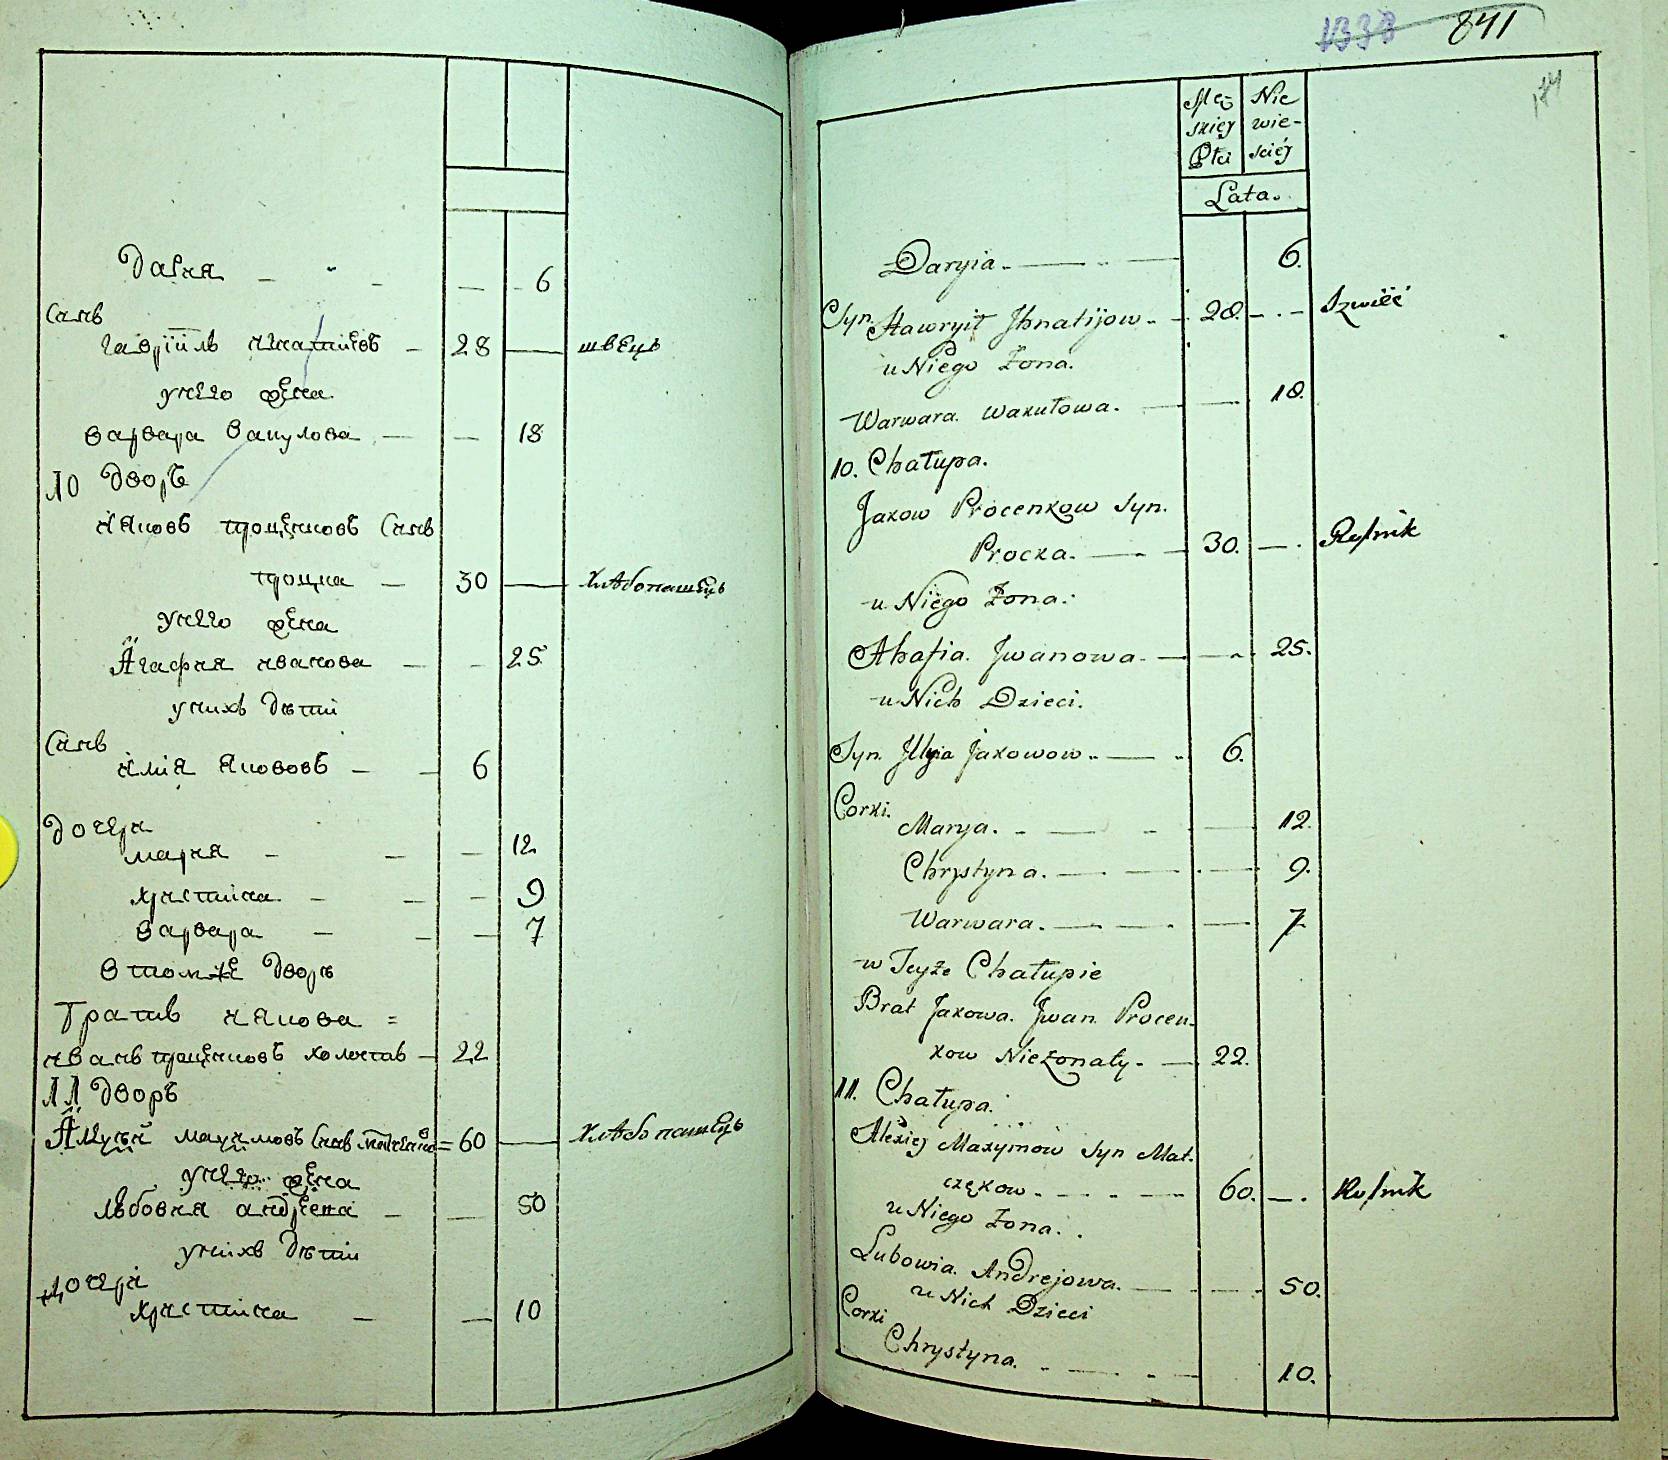 Дария — 6
Синъ
Гаврїилъ игнатиевъ — 28 — швецъ
у него жена
варвара вакулова — 18
10 дворъ
Яковъ проценковъ синъ
процка — 30 — хлѣбопашецъ
у него жена
Агафия иванова — 25
у нихъ дѣти
Синъ
илїя якововъ — 6
дочери
мария — 12
христина — 9
варвара — 7
в томже дворѣ
братъ якова =
иванъ проценковъ холостъ — 22
11 дворъ
Алеѯѣй маѯимовъ синъ = 60 — хлѣбопашецъ
у него жена
любовия андреева — 50
у нихъ дѣти
дочери
христина — 10
1338 841
174
Męzkięy Płci Niewieścięy
Lata.
Daryia. — 6.
Syn. Hawryił Jhnatijow. — 28. — Szwiec
u Niego Żona.
Warwara. Wakułowa. — 18.
10. Chałupa.
Jakow Procenkow Syn.
Procka. — 30. — Rolnik
u Niego Żona.
Ahafia. Jwanowa. — 25.
u Nich Dzieci.
Syn. Jllyia Jakowow. — 6.
Corki.
Marya. — 12.
Chrystyna. — 9.
Warwara. — 7.
w Teyże Chałupie
Brat Jakowa. Jwan Procen-
kow Nieżonaty. — 22.
11. Chałupa.
Alexiej Maxymow Syn Mat-
czękow. — 60. — Rolnik
u Niego Żona.
Lubowia. Andrejowa. — 50.
u Nich Dzieci
Corki
Chrystyna. — 10.